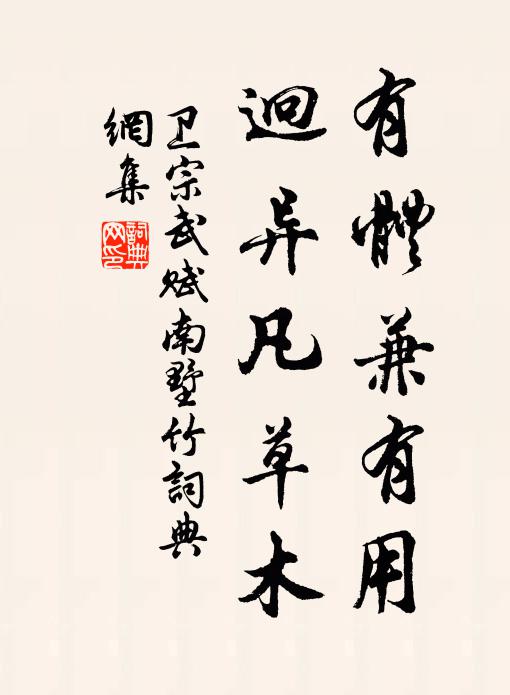 有體兼有用
迥异凡草木
卫宗武赋南墅竹詞典
網集
詞典
网印